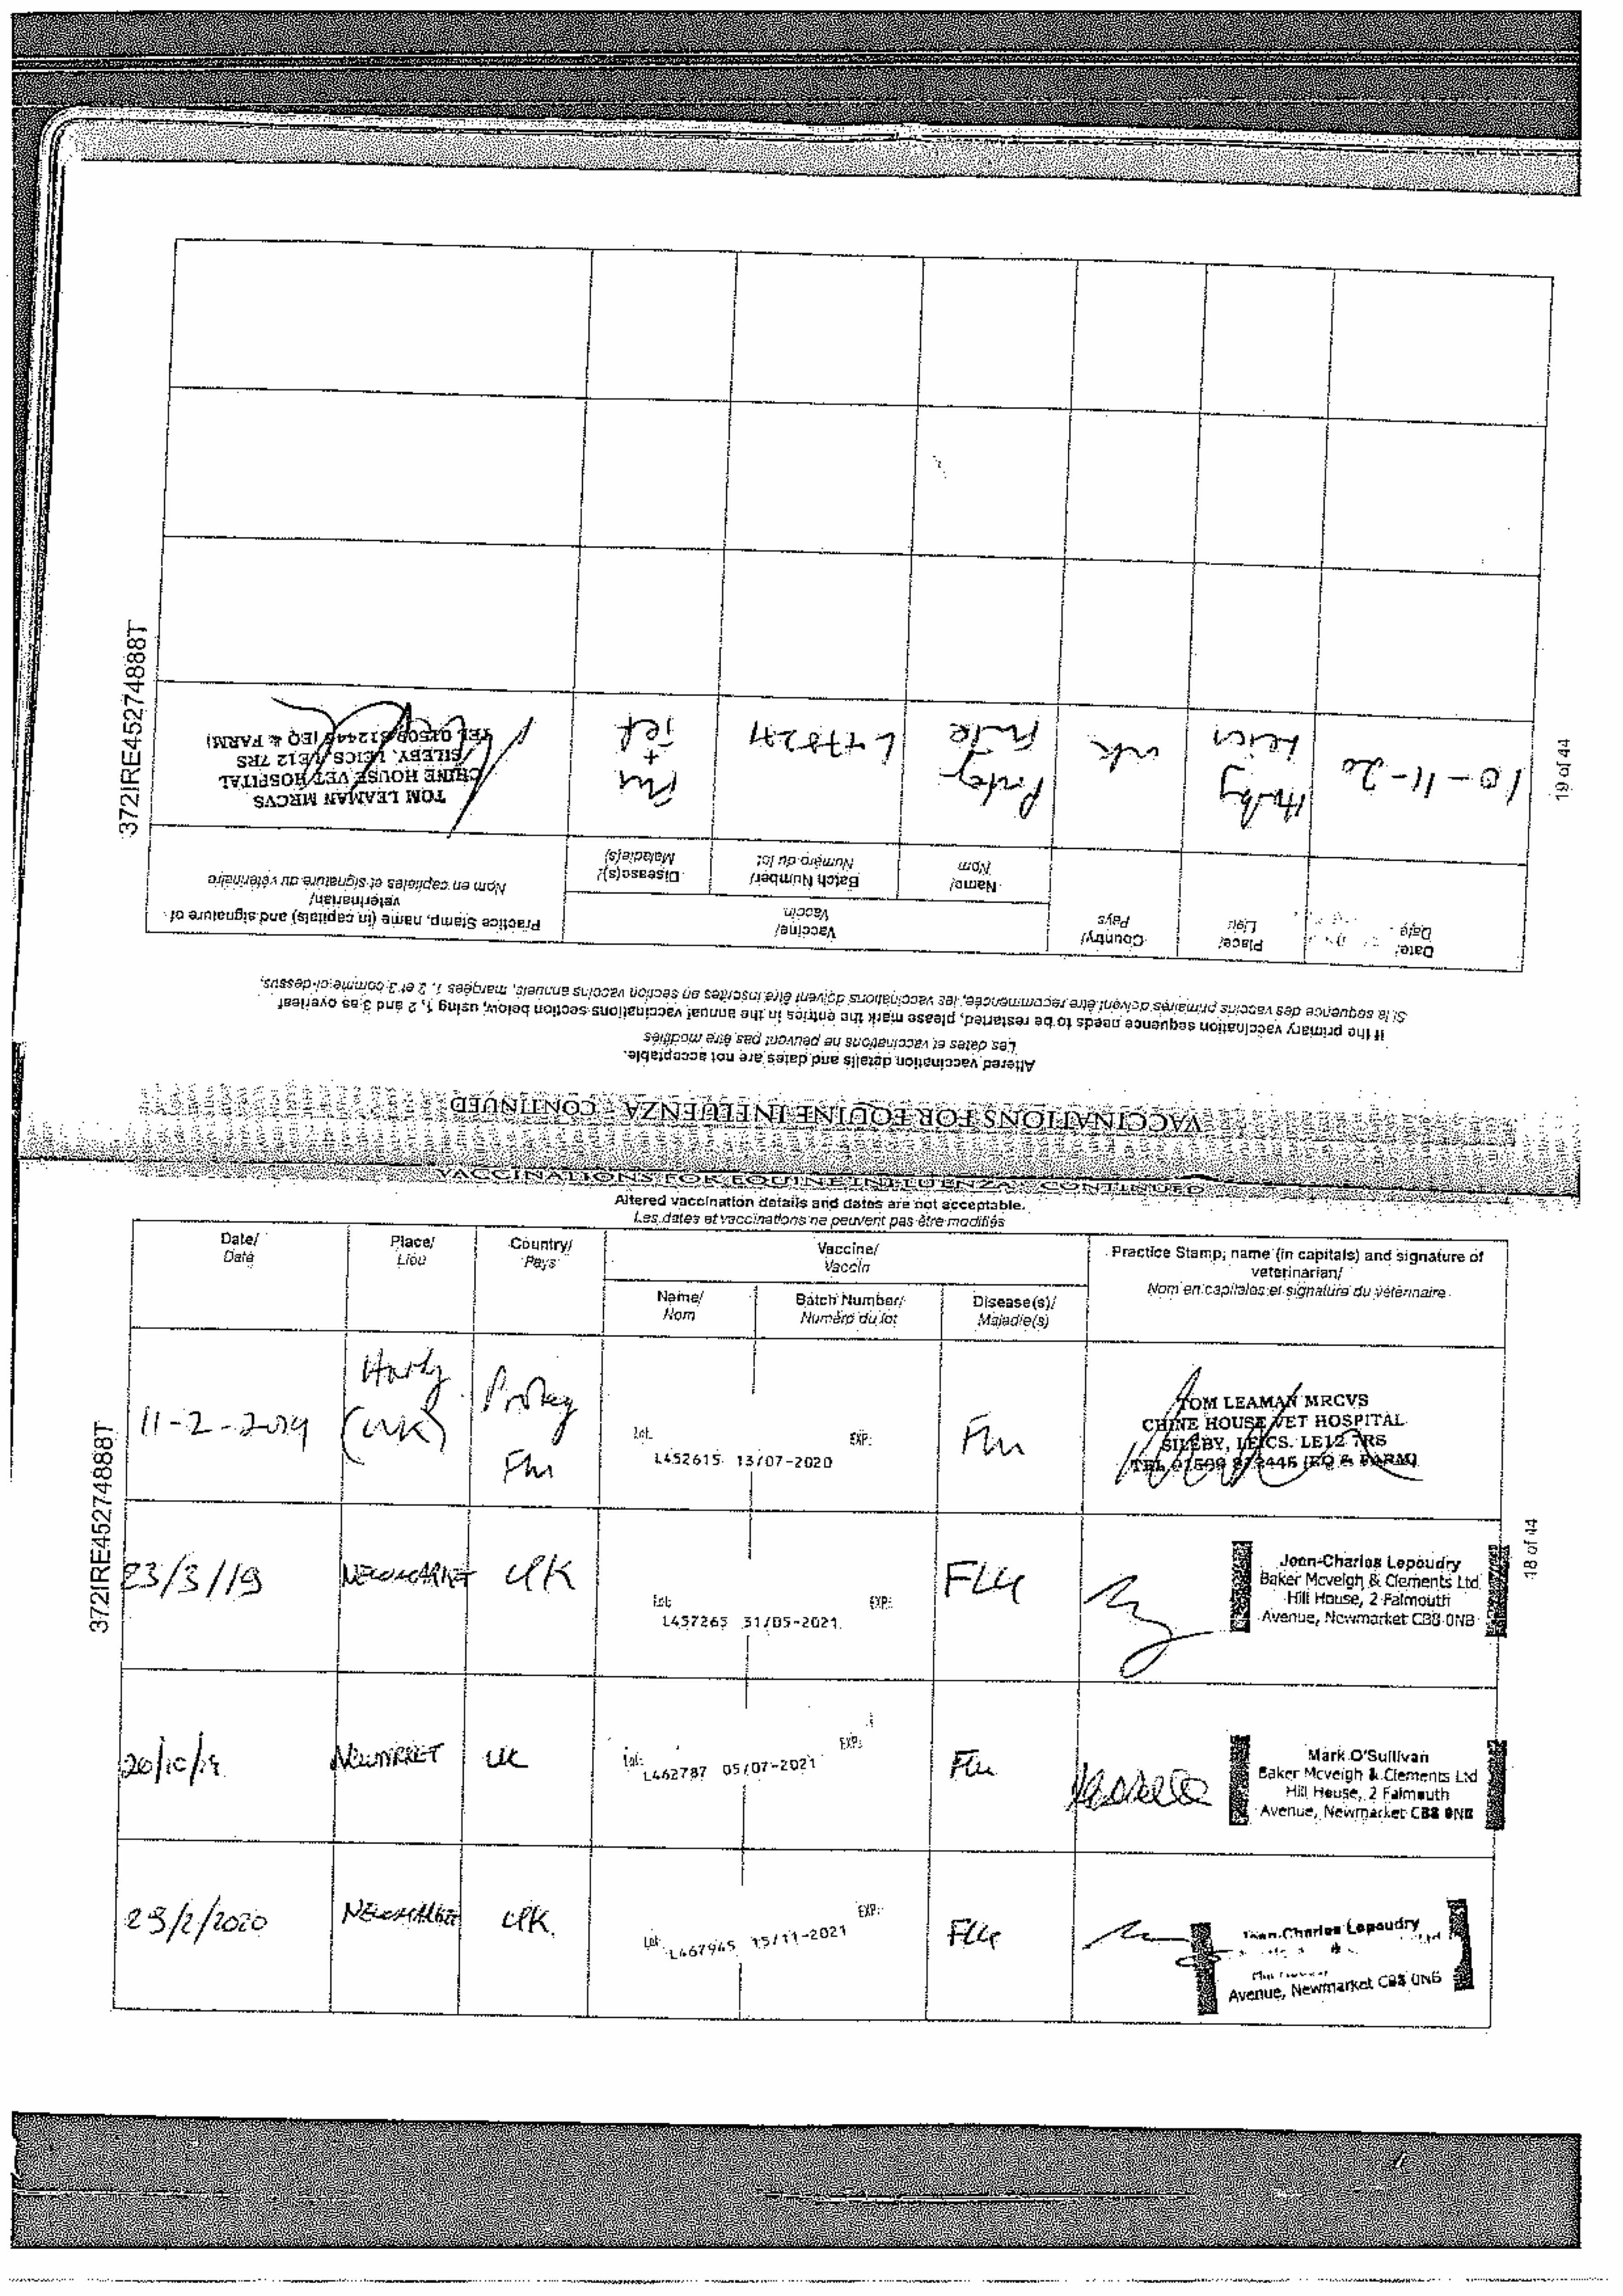 372IRE45274888T
19 of 44
VACCINATIONS FOR EQUINE INFLUENZA - CONTINUED
Altered vaccination details and dates are not acceptable.
Les dates et vaccinations ne peuvent pas être modifiés
If the primary vaccination sequence needs to be restarted, please mark the entries in the annual vaccinations section below, using 1, 2 and 3 as overleaf
Si la sequence des vaccins primaires doivent être recommencée, les vaccinations doivent être inscrites en section vaccins annuels, margées 1, 2 et 3 comme ci-dessus.
Date/ Date
Place/ Lieu
Country/ Pays
Vaccine/ Vaccin
Name/ Nom
Batch Number/ Numéro du lot
Disease(s)/ Maladie(s)
Practice Stamp, name (in capitals) and signature of veterinarian/
Nom en capitales et signature du vétérinaire
10-11-20
Leics
UK
Flu + Tet
TOM LEAMAN MRCVS
CHINE HOUSE VET HOSPITAL
SILEBY, LEICS. LE12 7RS
TEL 01509 812445 (EQ & FARM)
VACCINATIONS FOR EQUINE INFLUENZA - CONTINUED
Altered vaccination details and dates are not acceptable.
Les dates et vaccinations ne peuvent pas être modifiés
Date/ Date
Place/ Lieu
Country/ Pays
Vaccine/ Vaccin
Name/ Nom
Batch Number/ Numéro du lot
Disease(s)/ Maladie(s)
Practice Stamp, name (in capitals) and signature of veterinarian/
Nom en capitales et signature du vétérinaire
11-2-2019
(UK)
Proteq Flu
Lot: EXP:
L452615 13/07-2020
Flu
TOM LEAMAN MRCVS
CHINE HOUSE VET HOSPITAL
SILEBY, LEICS. LE12 7RS
TEL 01509 812445 (EQ & FARM)
23/3/19
NEWMARKET
UK
Lot: EXP:
L457265 31/05-2021
FLU
Jean-Charles Lepoudry
Baker Mcveigh & Clements Ltd
Hill House, 2 Falmouth
Avenue, Newmarket CB8 0NB
20/10/19
NEWMARKET
UK
Lot: EXP:
L462787 05/07-2021
Flu
Mark O'Sullivan
Baker Mcveigh & Clements Ltd
Hill House, 2 Falmouth
Avenue, Newmarket CB8 0NB
NEWMARKET
UK
Lot: EXP:
L467945 15/11-2021
FLU
Jean-Charles Lepoudry
Avenue, Newmarket CB8 0NB
372IRE45274888T
18 of 44